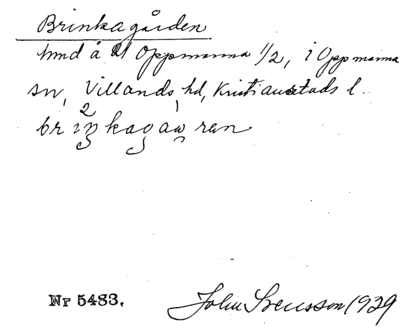 Brinkagården
hmd å Oppmanna 1/2, i Oppmanna
sn, Villands hd, Kristianstads l.
Nr 5483. John Svensson 1929